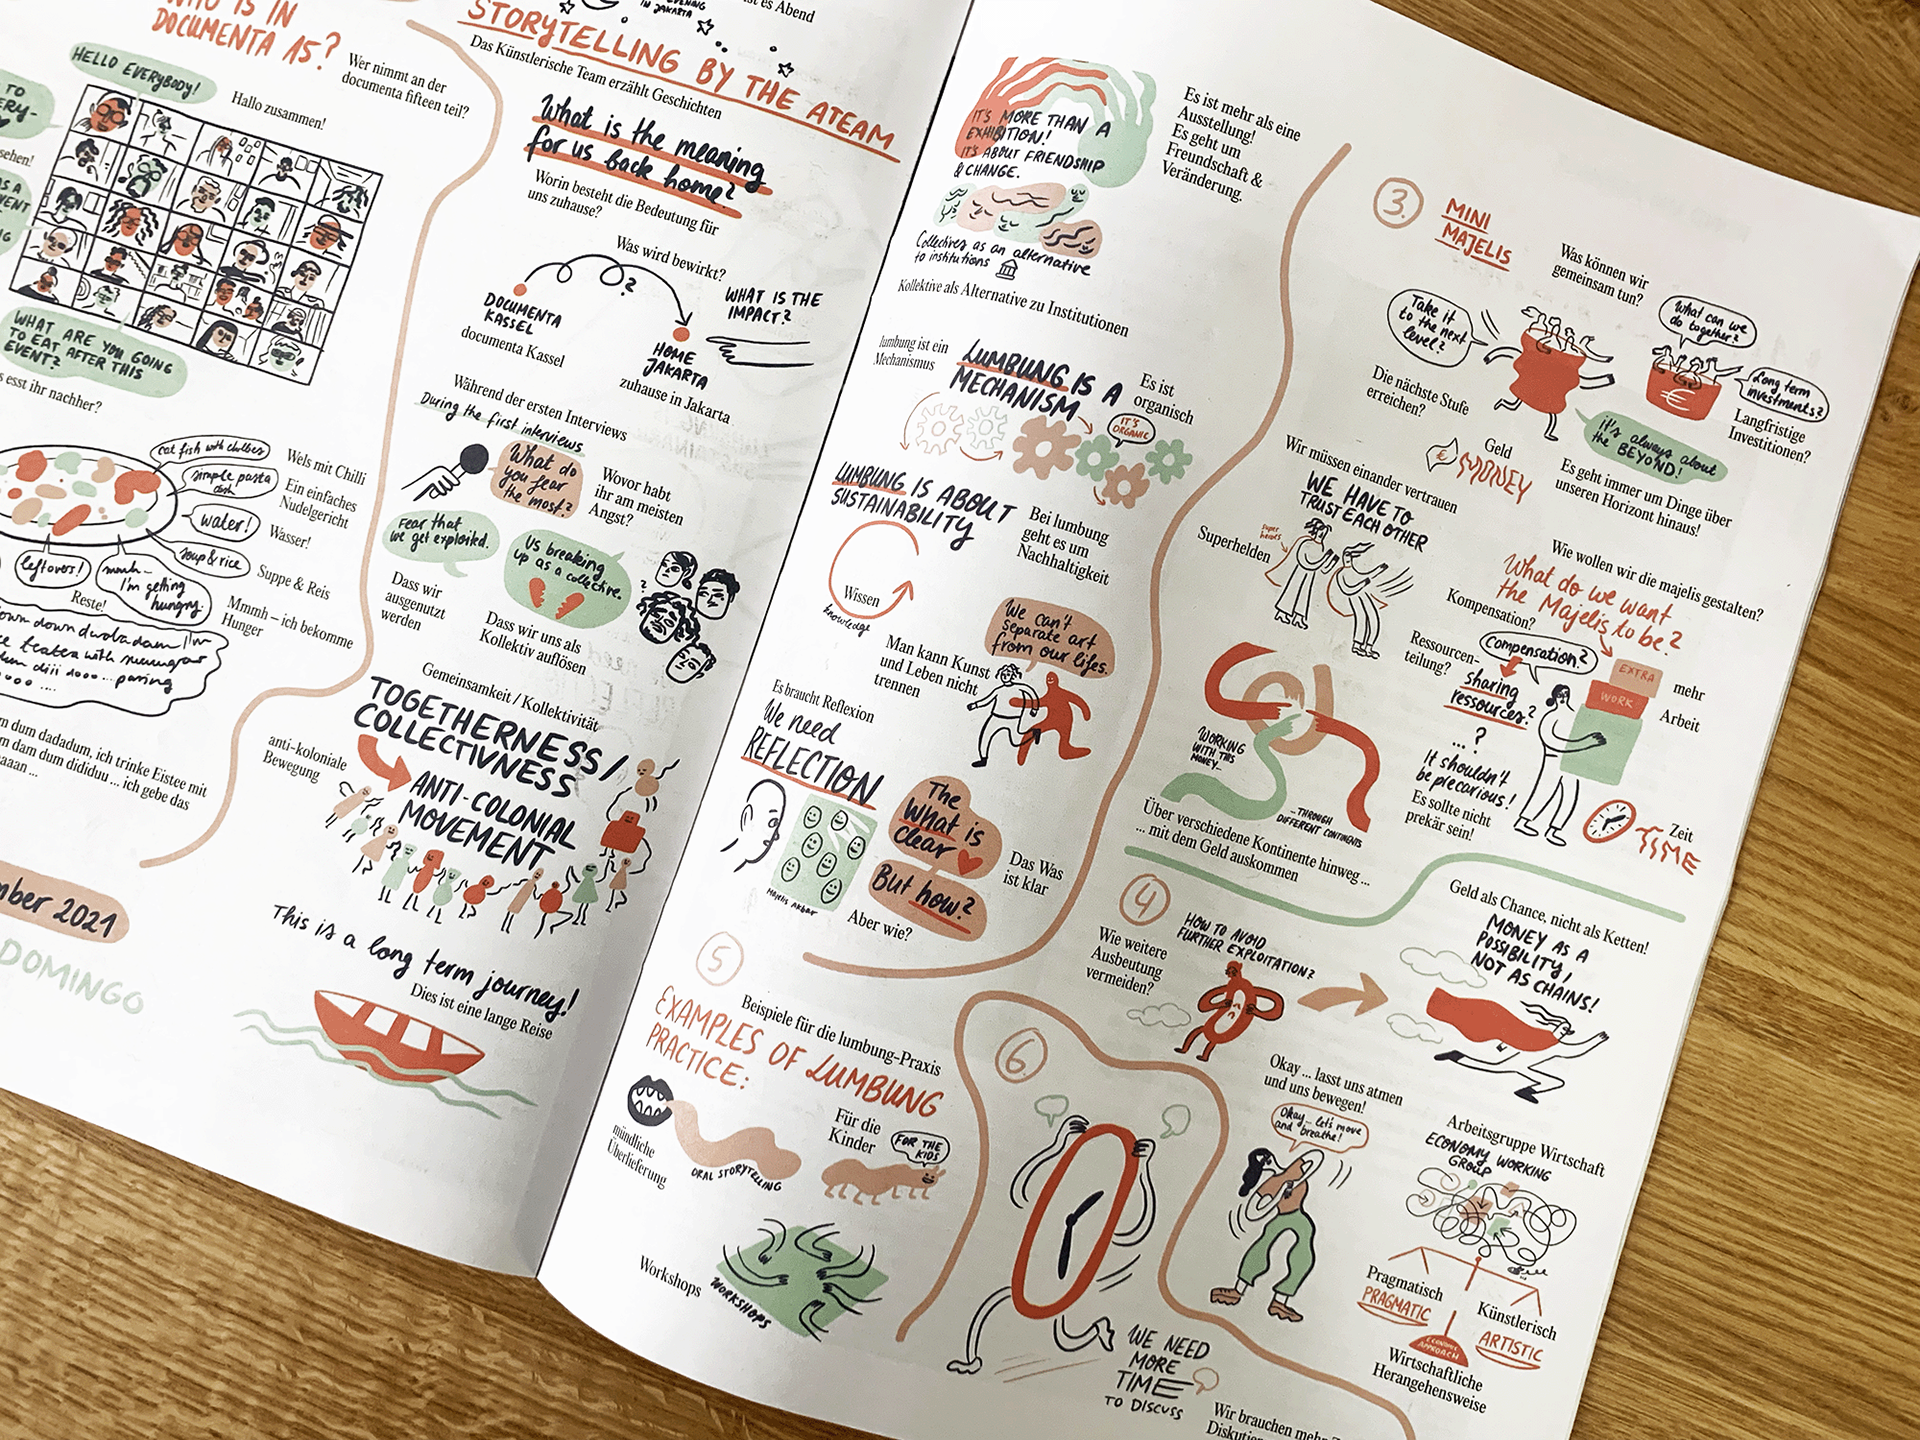 WHO IS IN
DOCUMENTA 15?
Wer nimmt an der
documenta fifteen teil?
HELLO EVERYBODY!
Hallo zusammen!
TO
WHAT ARE YOU GOING
TO EAT AFTER THIS
EVENT?
esst ihr nachher?
eat fish with chillies
simple pasta
dish
water!
soup & rice
leftovers!
mmh-
I'm getting
hungry.
Wels mit Chili
Ein einfaches
Nudelgericht
Wasser!
Suppe & Reis
Reste!
Mmmh – ich bekomme
Hunger
dum dadadum, ich trinke Eistee mit
dam dum dididuu ... ich gebe das
2021
DOMINGO
es Abend
EVENING
IN JAKARTA
STORYTELLING BY THE ATEAM
Das Künstlerische Team erzählt Geschichten
What is the meaning
for us back home?
Worin besteht die Bedeutung für
uns zuhause?
Was wird bewirkt?
?
DOCUMENTA
KASSEL
documenta Kassel
WHAT IS THE
IMPACT?
HOME
JAKARTA
zuhause in Jakarta
Während der ersten Interviews
During the first interviews
What do
you fear
the most?
Wovor habt
ihr am meisten
Angst?
Fear that
we get exploited.
Us breaking
up as a collective.
Dass wir
ausgenutzt
werden
Dass wir uns als
Kollektiv auflösen
Gemeinsamkeit / Kollektivität
TOGETHERNESS /
COLLECTIVNESS
anti-koloniale
Bewegung
ANTI-COLONIAL
MOVEMENT
This is a long term journey!
Dies ist eine lange Reise
IT'S MORE THAN A
EXHIBITION!
IT'S ABOUT FRIENDSHIP
& CHANGE.
Es ist mehr als eine
Ausstellung!
Es geht um
Freundschaft &
Veränderung.
Collectives as an alternative
to institutions
Kollektive als Alternative zu Institutionen
lumbung ist ein
Mechanismus
LUMBUNG IS A
MECHANISM
Es ist
organisch
IT'S
ORGANIC
LUMBUNG IS ABOUT
SUSTAINABILITY
Bei lumbung
geht es um
Nachhaltigkeit
Wissen
knowledge
We can't
separate art
from our lifes.
Man kann Kunst
und Leben nicht
trennen
Es braucht Reflexion
We need
REFLECTION
MAJELIS AKBAR
The
What is
clear
But how?
Das Was
ist klar
Aber wie?
3.
MINI
MAJELIS
Was können wir
gemeinsam tun?
Take it
to the next
level?
What can we
do together?
Long term
investments?
€
Die nächste Stufe
erreichen?
it's always about
the BEYOND!
Langfristige
Investitionen?
Geld
€ MONEY
Es geht immer um Dinge über
unseren Horizont hinaus!
Wir müssen einander vertrauen
WE HAVE TO
TRUST EACH OTHER
Superhelden
super
heroes
Wie wollen wir die majelis gestalten?
What do we want
the Majelis to be?
Kompensation?
Compensation?
Ressourcen-
teilung?
sharing
resources?
EXTRA
WORK
mehr
Arbeit
... ?
It shouldn't
be precarious!
Es sollte nicht
prekär sein!
Zeit
TIME
WORKING
WITH THIS
MONEY...
...THROUGH
DIFFERENT CONTINENTS
Über verschiedene Kontinente hinweg ...
... mit dem Geld auskommen
4
HOW TO AVOID
FURTHER EXPLOITATION?
Wie weitere
Ausbeutung
vermeiden?
Geld als Chance, nicht als Ketten!
MONEY AS A
POSSIBILITY,
NOT AS CHAINS!
5
Beispiele für die lumbung-Praxis
EXAMPLES OF LUMBUNG
PRACTICE:
mündliche
Überlieferung
ORAL STORYTELLING
Für die
Kinder
FOR THE
KIDS
Workshops
WORKSHOPS
6.
WE NEED
MORE
TIME
TO DISCUSS
Wir brauchen mehr
Okay ... lasst uns atmen
und uns bewegen!
Okay... let's move
and breathe!
Arbeitsgruppe Wirtschaft
ECONOMY WORKING
GROUP
Pragmatisch
PRAGMATIC
Künstlerisch
ARTISTIC
ECONOMIC
APPROACH
Wirtschaftliche
Herangehensweise